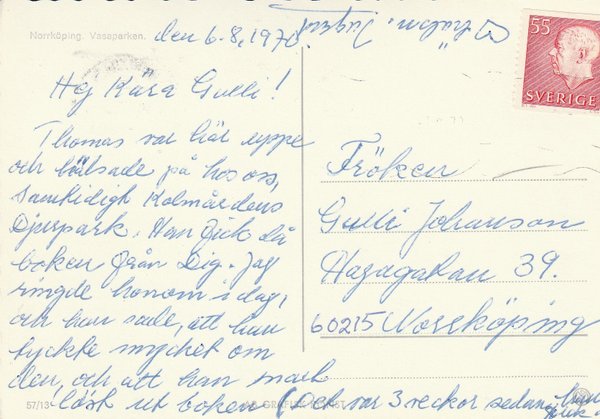 Norrköping. Vasaparken.
den 6.8, 1970.
Hej Kära Gulli!
Thomas var här uppe
och hälsade på hos oss,
samtidigt Kolmårdens
Djurpark. Han fick då
boken från Dig. Jag
ringde honom i dag,
och han sade, att han
tyckte mycket om
den, och att han snart
läst ut boken (det var 3 veckor sedan, han
fick
55
SVERIGE
Fröken
Gulli Johanson
Hagagatan 39.
60215 Norrköping
57/13
AB